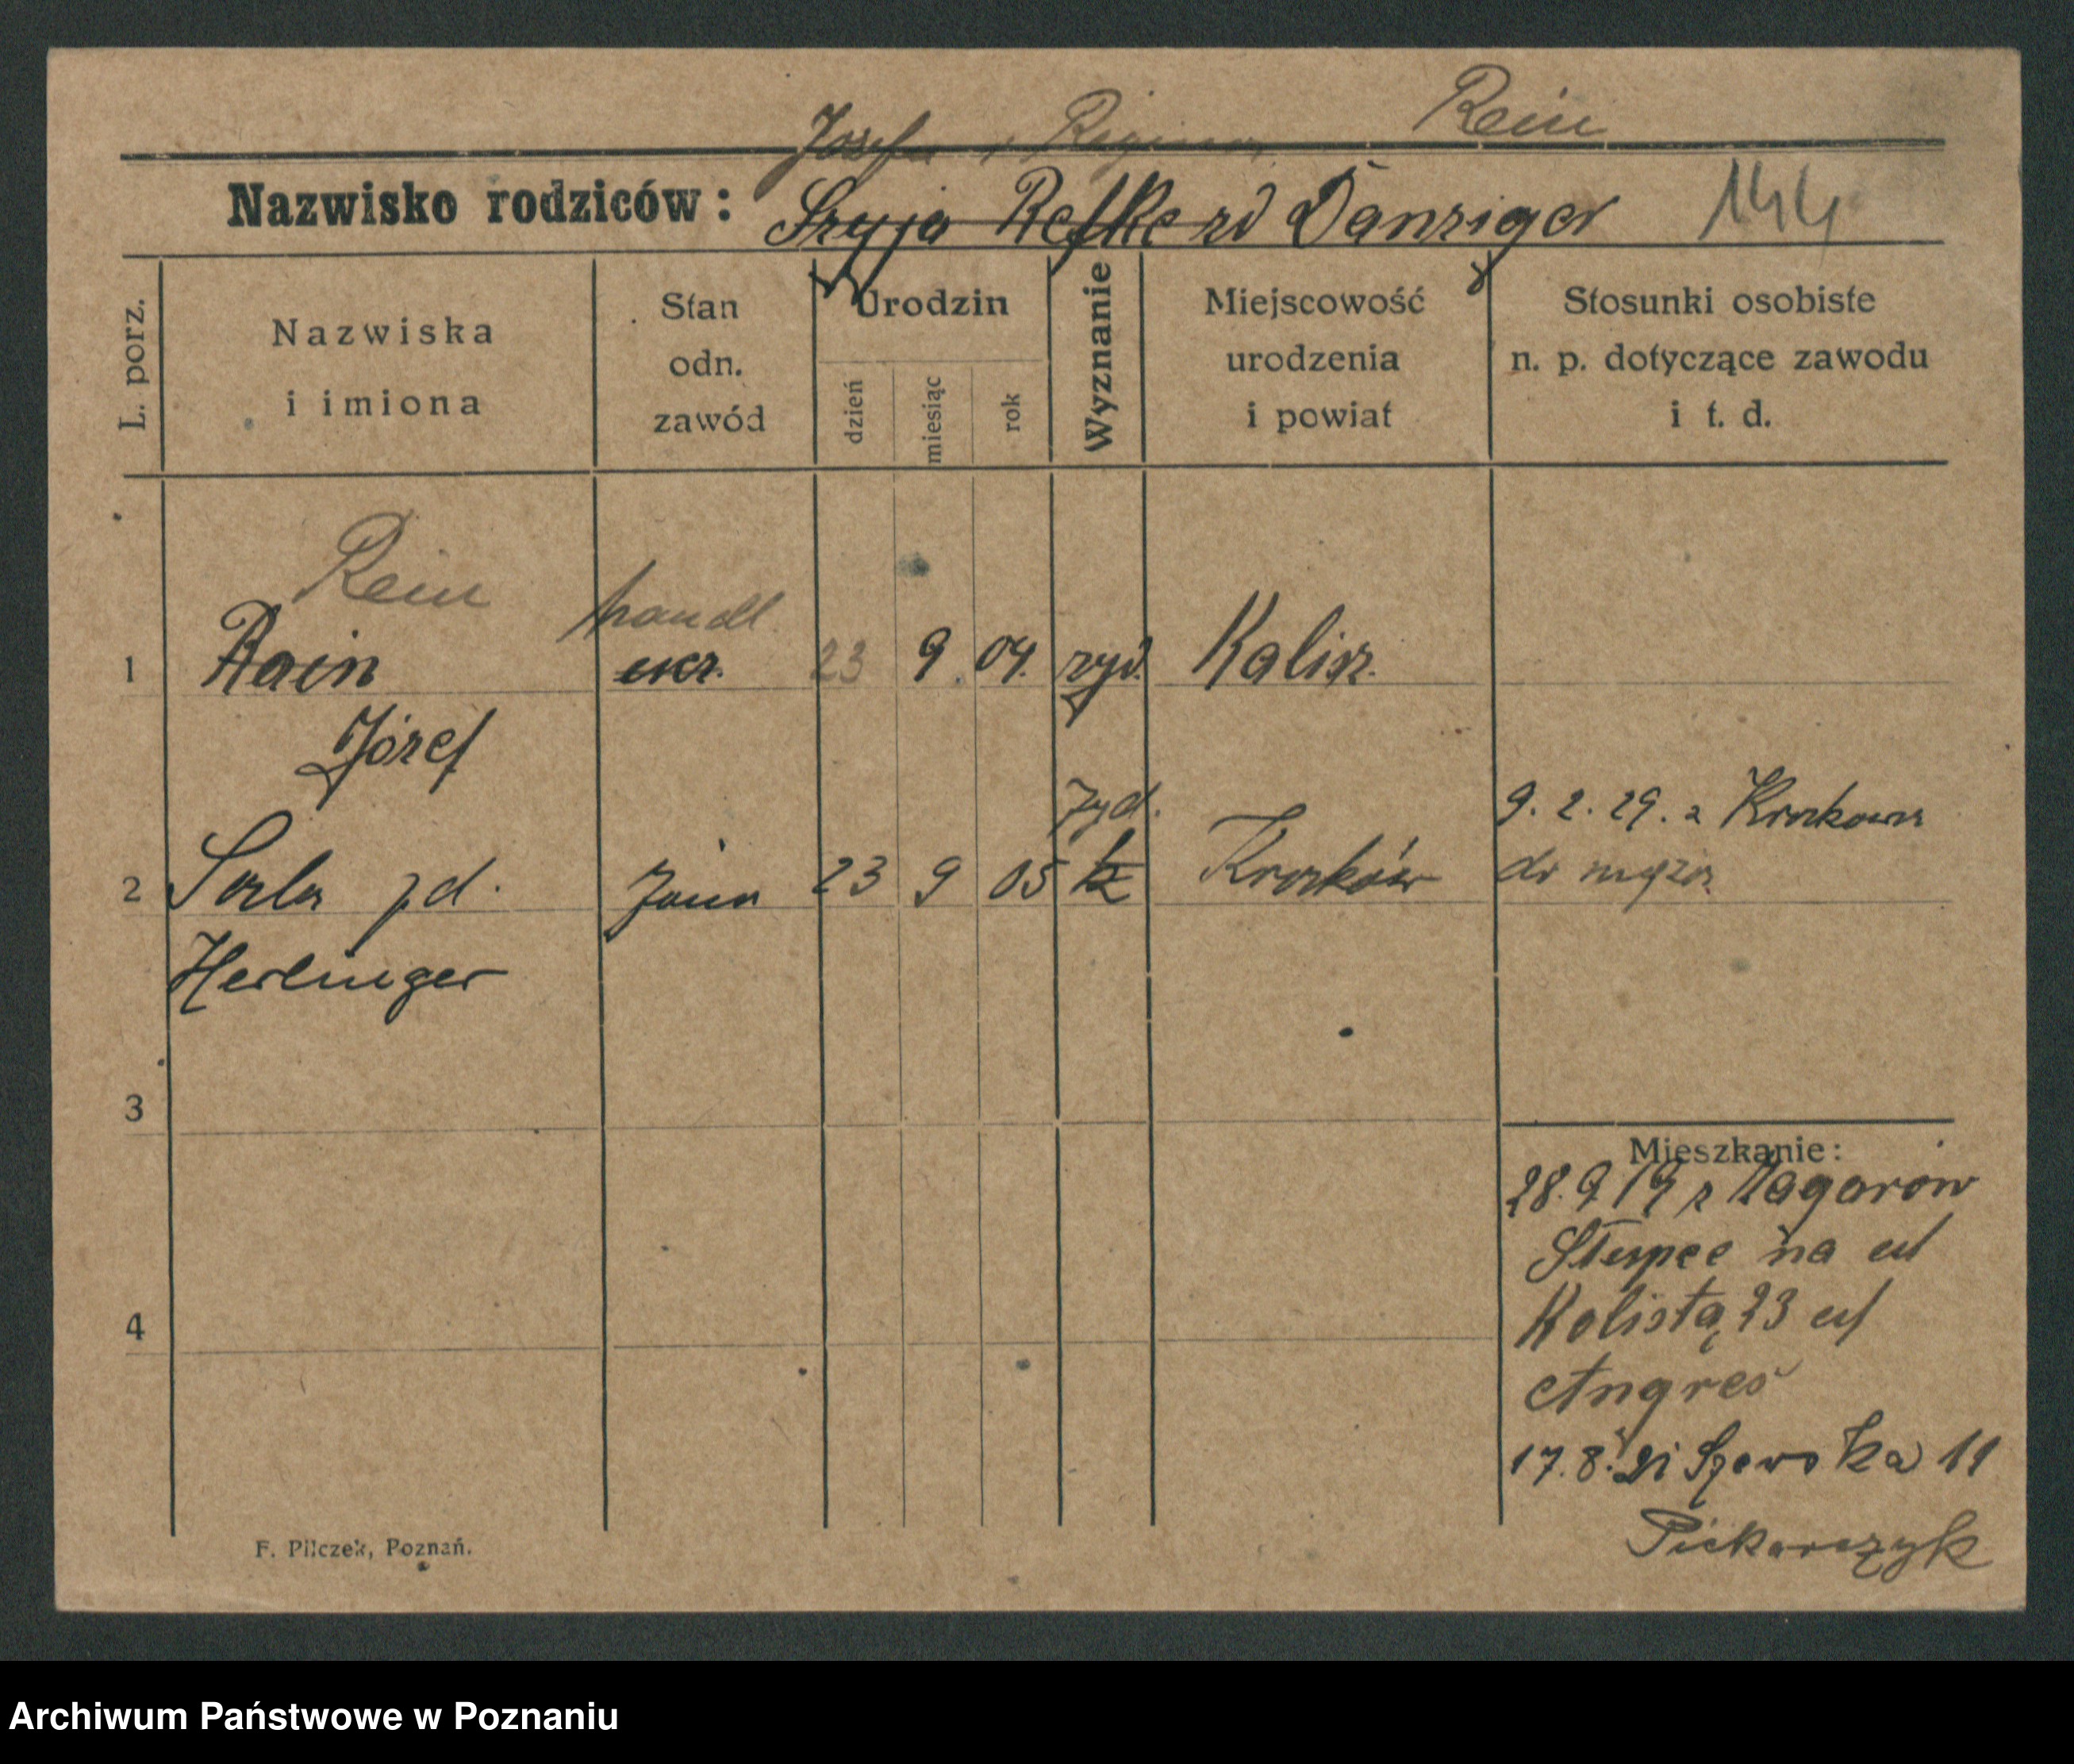 Josef i Regina Rein
Nazwisko rodziców: Szyja Refke zd Danziger 144
L. porz.
Nazwiska
i imiona
Stan
odn.
zawód
Urodzin
dzień
miesiąc
rok
Wyznanie
Miejscowość
urodzenia
i powiat
Stosunki osobiste
n. p. dotyczące zawodu
i t. d.
Rein
handl.
1 Rain ucz. 23 9. 04. żyd. Kalisz.
Józef
żyd. 9. 2. 29. z Krakowa
2 Sala zd. żona 23 9 05 Kraków do męża
Herlinger
3
Mieszkanie:
28. 9 19 z Zagorów
Słupce na ul
4 Kolistą 23 ul
Angres
17. 8. 21 Szewska 11
Piekarczyk
F. Pilczek, Poznań.
Archiwum Państwowe w Poznaniu